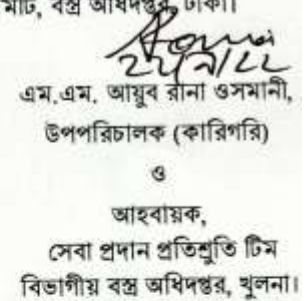 মাট, বস্ত্র অধিদপ্তর, ঢাকা।
এম.এম. আয়ুব রানা ওসমানী,
উপপরিচালক (কারিগরি)
ও
আহবায়ক,
সেবা প্রদান প্রতিশ্রুতি টিম
বিভাগীয় বস্ত্র অধিদপ্তর, খুলনা।